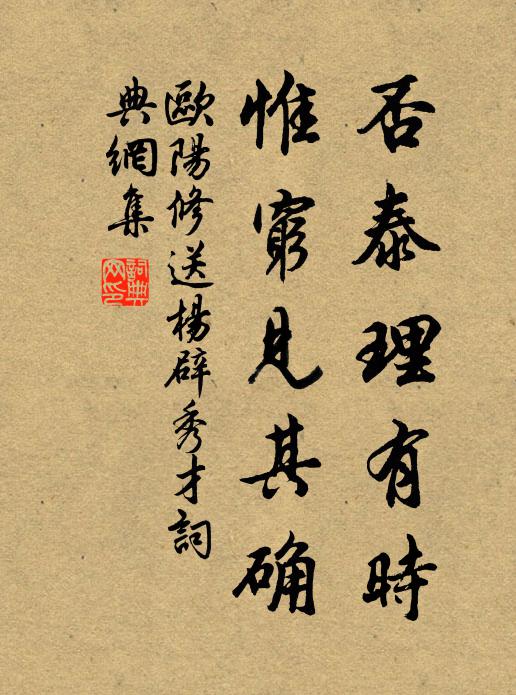 否泰理有時
惟窮見其确
歐陽修送楊辟秀才詞
典網集
詞典網印